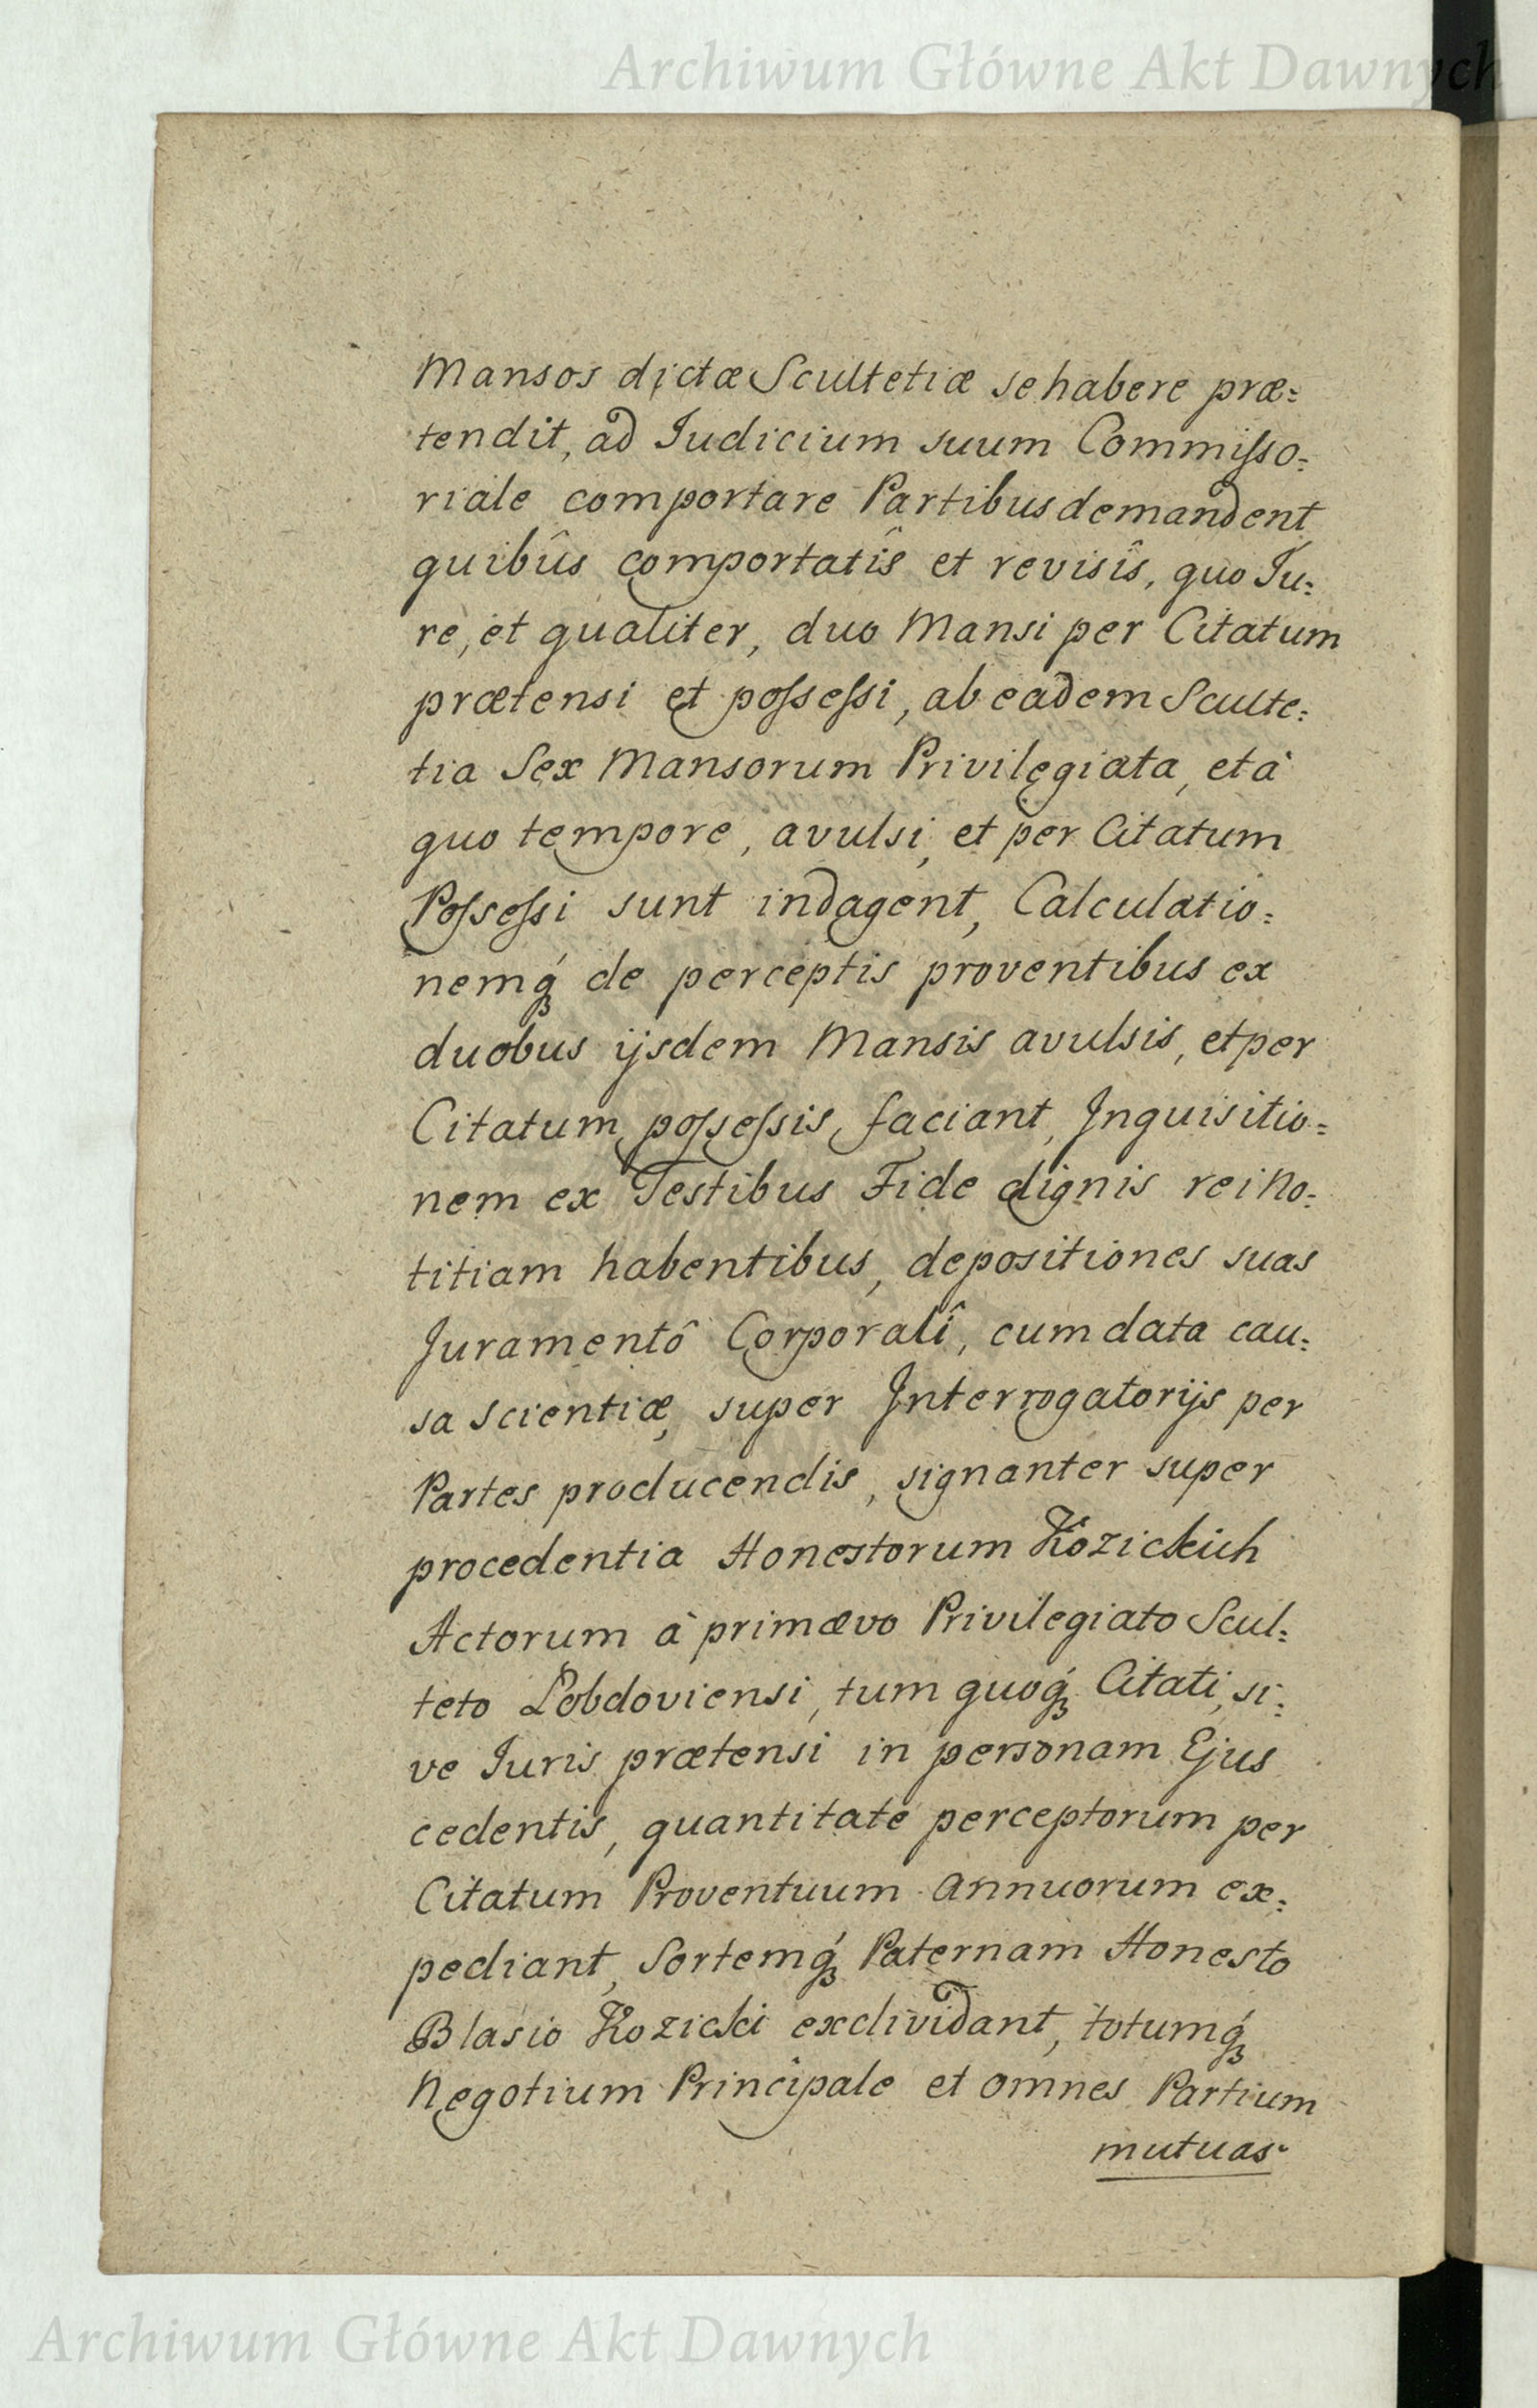 Archiwum Główne Akt Dawnych
Mansos dictæ Scultetiæ se habere præ=
tendit, ad Judicium suum Commisso=
riale comportare Partibus demandent,
quibûs comportatîs et revisîs, quo Ju=
re, et qualiter, duo Mansi per Citatum
prætensi et possessi, ab eadem Sculte=
tia Sex Mansorum Privilegiata, et à
quo tempore, avulsi, et per Citatum
Possessi sunt indagent, Calculatio=
nemq́ue de perceptis proventibus ex
duobus ijsdem Mansis avulsis, et per
Citatum possessis, faciant, Inquisitio=
nem ex Testibus Fide dignis rei No=
titiam habentibus, depositiones suas
Juramentô Corporalî, cum data cau=
sa scientiæ, super Interrogatorijs per
Partes producendis, signanter super
procedentia Honestorum Kozickich
Actorum à primævo Privilegiato Scul=
teto Łobdoviensi, tum quoq́ue Citati, si=
ve Juris prætensi in personam Ejus
cedentis, quantitate perceptorum per
Citatum Proventuum annuorum ex=
pediant, Sortemq́ue Paternam Honesto
Blasio Kozicki exdividant, totumq́ue
Negotium Principale et omnes Partium
mutuas
Archiwum Główne Akt Dawnych